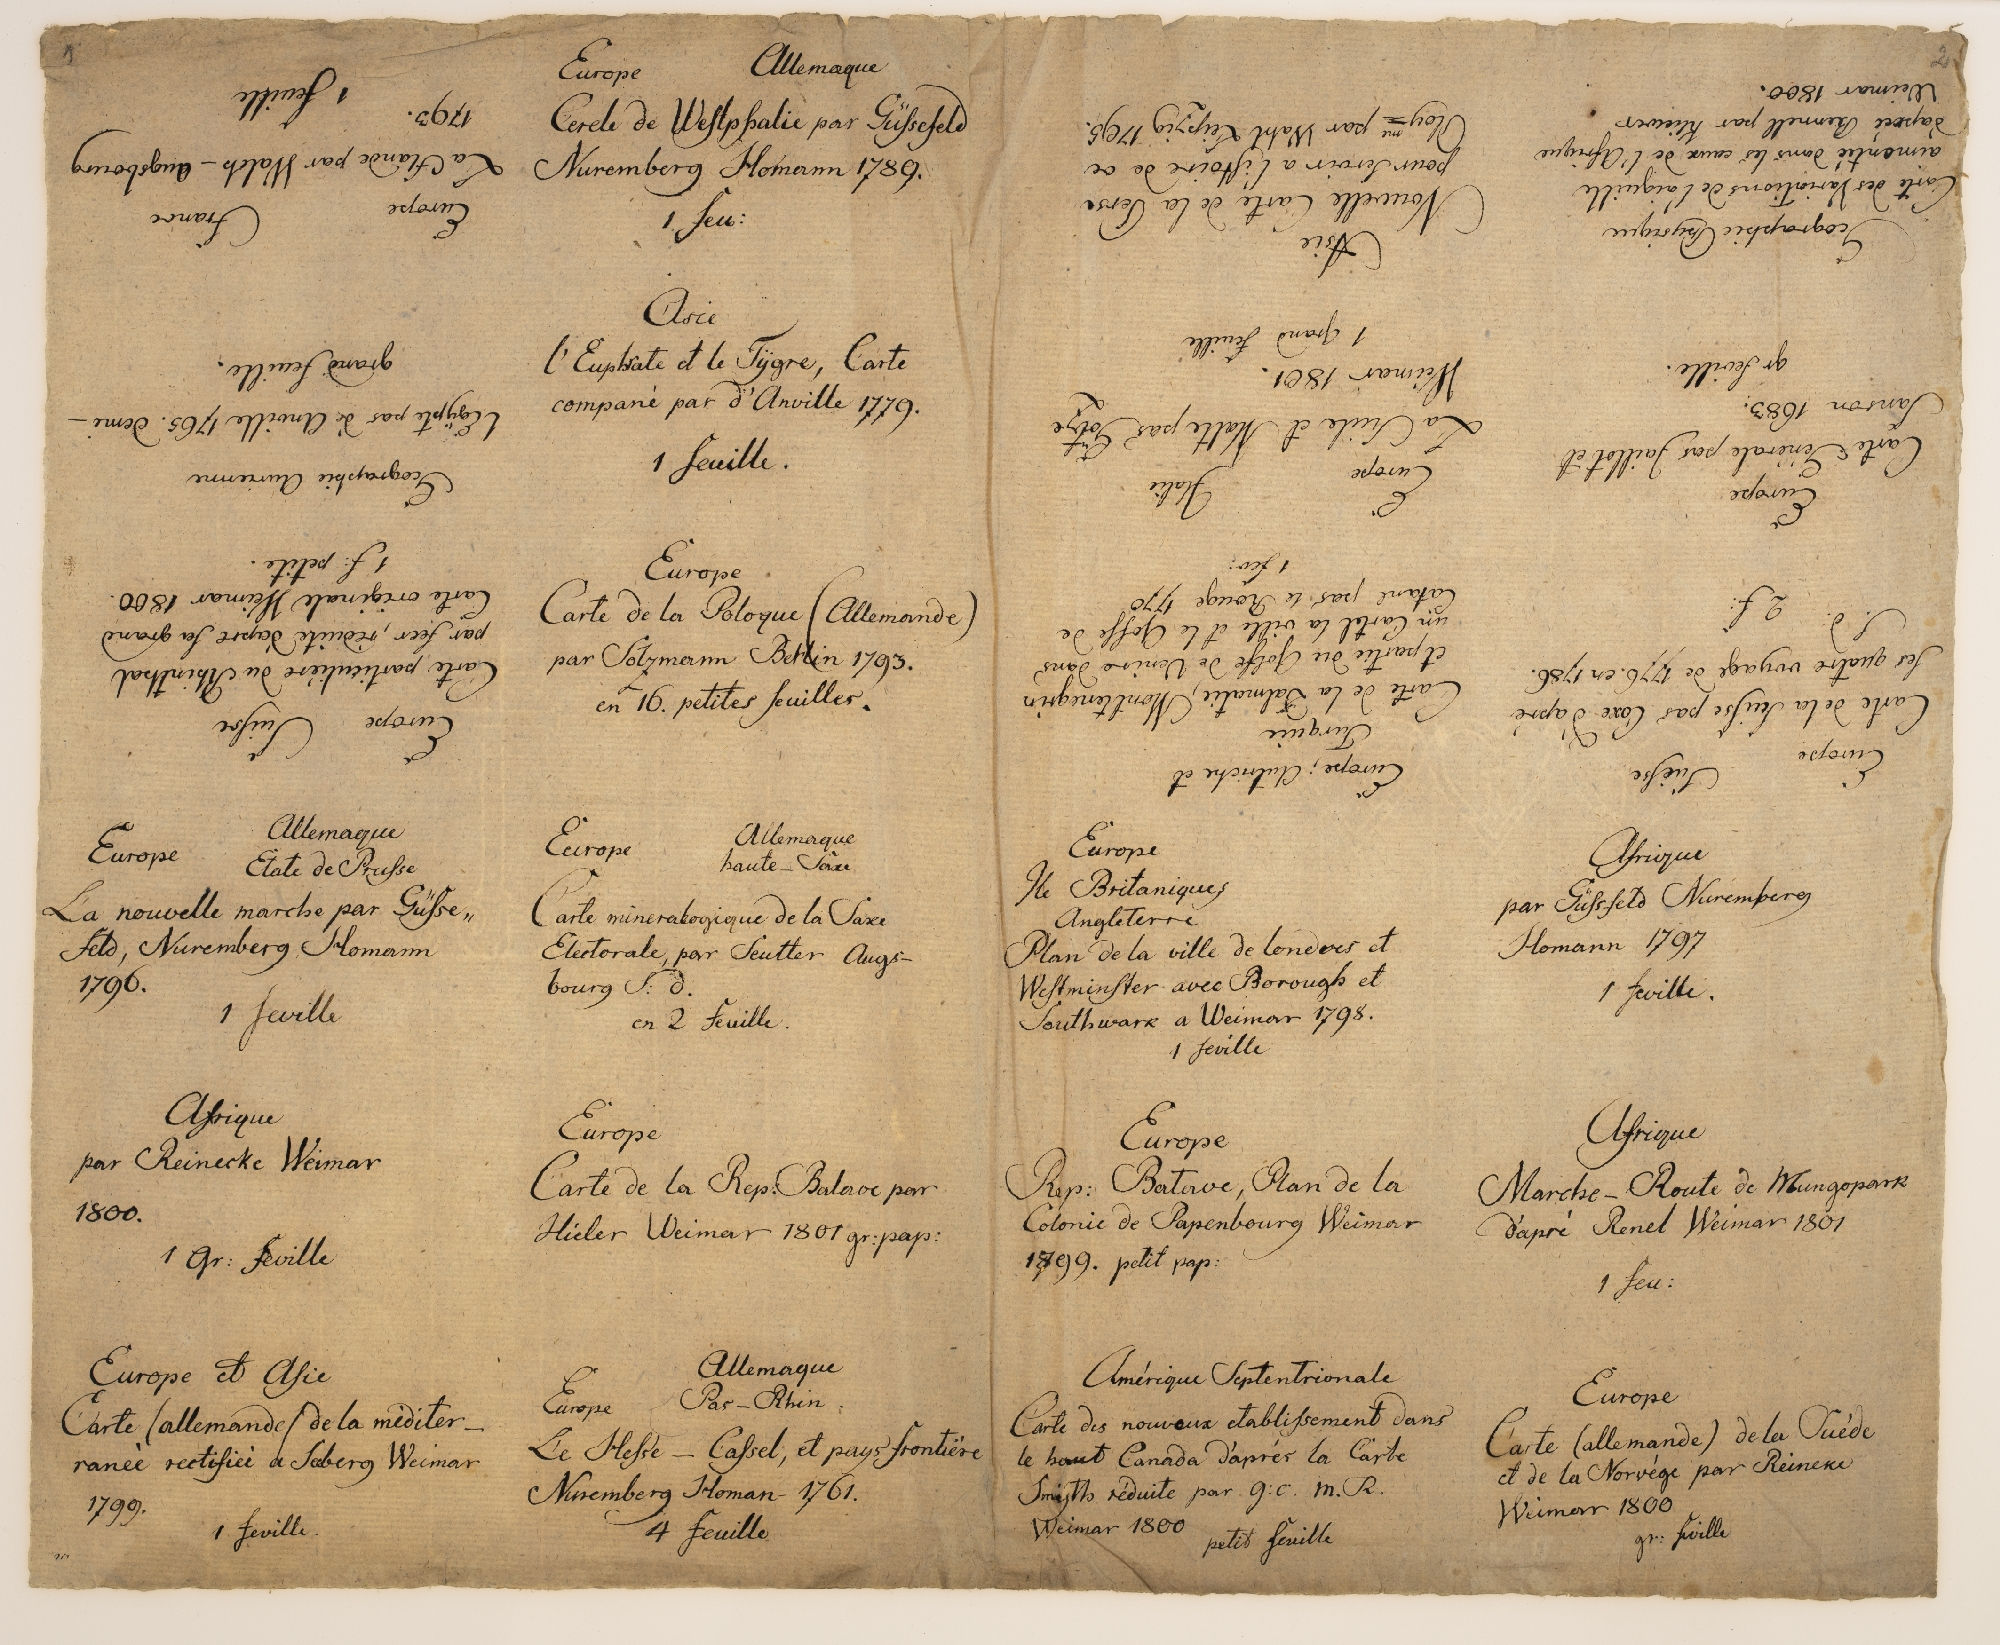 1
2
Europe France
La Flande par Walch – Augsbourg
1793.
1 feuille
Europe Allemaque
Cercle de Westphalie par Güssefeld
Nuremberg Homann 1786.
1 feu:
Asie
Nouvelle Carte de la Perse
pour servir a l'istoire de ce
Royme par Wahl Leipzig 1795.
Géographie Physique
Carte des Variations de l'aiguille
aimentée dans les eaux de l'Afrique
d'aprèe Rennell par
Weimar 1800.
Géographie Ancienne
l'Egÿpte par d'Anville 1765. demi –
grand feuille.
Asie
l'Euphrate et le Tÿgre, Carte
companè par d'Anville 1779.
1 feuille.
Europe Italie
La Sicile et Malte par Götze
Weimar 1801.
1 grand feuille
Europe
Carte Générale par Jaillot et
Sanson 1683.
gr feuille.
Europe Suisse
Carte particulière du Rhinthal
par feer, réduite d'apre sa grand
Carte originale Weimar 1800.
1 f: petite.
Europe
Carte de la Poloque (Allemande)
par Sotzmann Berlin 1793.
en 16. petites feuilles.
Europe; Autriche et
Turquie
Carte de la Dalmatie, Monttenegrin
et partie du Golfe de Venise dans
un Cartel la ville et le Golfe de
Catane par le Rouge 1770
1 feu:
Europe Suisse
Carte de la Suisse par Coxe d'apré
ses quatre voyage de 1776. en 1786.
S. d.
2 f:
Europe Allemaque
Etate de Prusse
La nouvelle marche par Güsse„
feld, Nuremberg Homann
1796.
1 feuille
Europe Allemaque
haute – Saxe
Carte mineralogique de la Saxe
Electorale, par Seutter Augs–
bourg S: d.
en 2 feuille.
Europe
Ile Britaniques
Angleterre
Plan de la ville de londres et
Westminster avec Borough et
Southwark a Weimar 1798.
1 feuille
Afrique
par Güssfeld Nuremberg
Homann 1797
1 feuille.
Afrique
par Reinecke Weimar
1800.
1 gr: feuille
Europe
Carte de la Rep: Batave par
Weimar 1801 gr: pap:
Europe
Rep: Batave, Plan de la
Colonie de Papenbourg Weimar
1799. petit pap:
Afrique
Marche – Route de Mungopark
d'apré Renel Weimar 1801
1 feu:
Europe et Asie
Carte (allemande) de la mèditer –
ranèe rectifièe a Seberg Weimar
1799.
1 feuille.
Europe Allemaque
Pas – Rhin
Le Hesse – Cassel, et pays frontiére
Nuremberg Homan – 1761.
4 feuille
Amérique Septentrionale
Carte des nouveux etablissement dans
le haut Canada d'aprés la Carte
Smÿth réduite par g: c. m. R.
Weimar 1800
petit feuille
Europe
Carte (allemande) de la Suéde
et de la Norvége par Reineke
Weimar 1800
gr: feuille